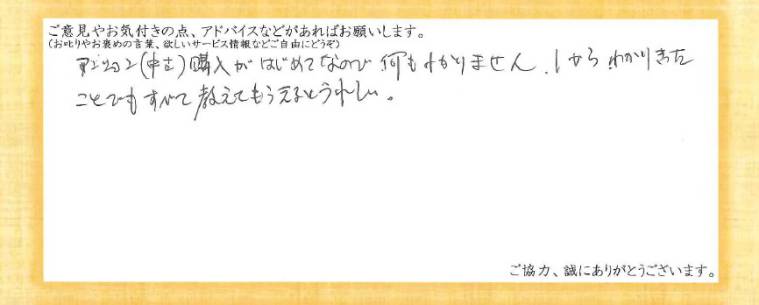 ご意見やお気付きの点、アドバイスなどがあればお願いします。
(お叱りやお褒めの言葉、欲しいサービス情報などご自由にどうぞ)
マンション(中古)購入がはじめてなので何もわかりません。1からわかりきった
ことでもすべて教えてもらえるとうれしい。
ご協力、誠にありがとうございます。